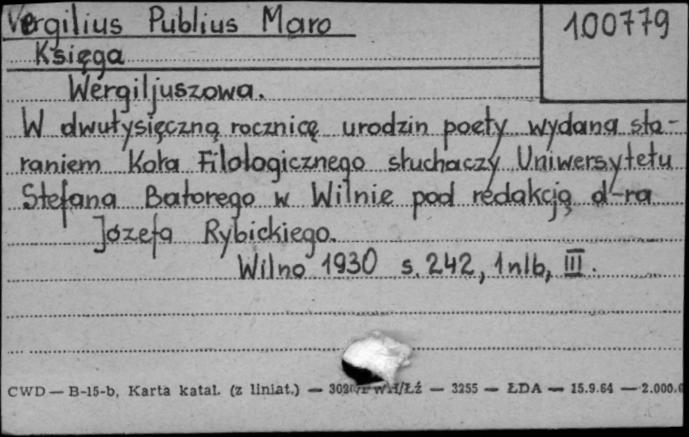 Vergilius Publius Maro
100779
Księga
Wergiljuszowa.
W dwutysięczną rocznicę urodzin poety wydana sta-
raniem Koła Filologicznego słuchaczy Uniwersytetu
Stefana Batorego w Wilnie pod redakcją d-ra
Józefa Rybickiego.
Wilno 1930 s. 242, 1 nlb, III.
CWD — B-15-b, Karta katal. (z liniat.) — — 3255 — ŁDA — 15.9.64 — 2.000.